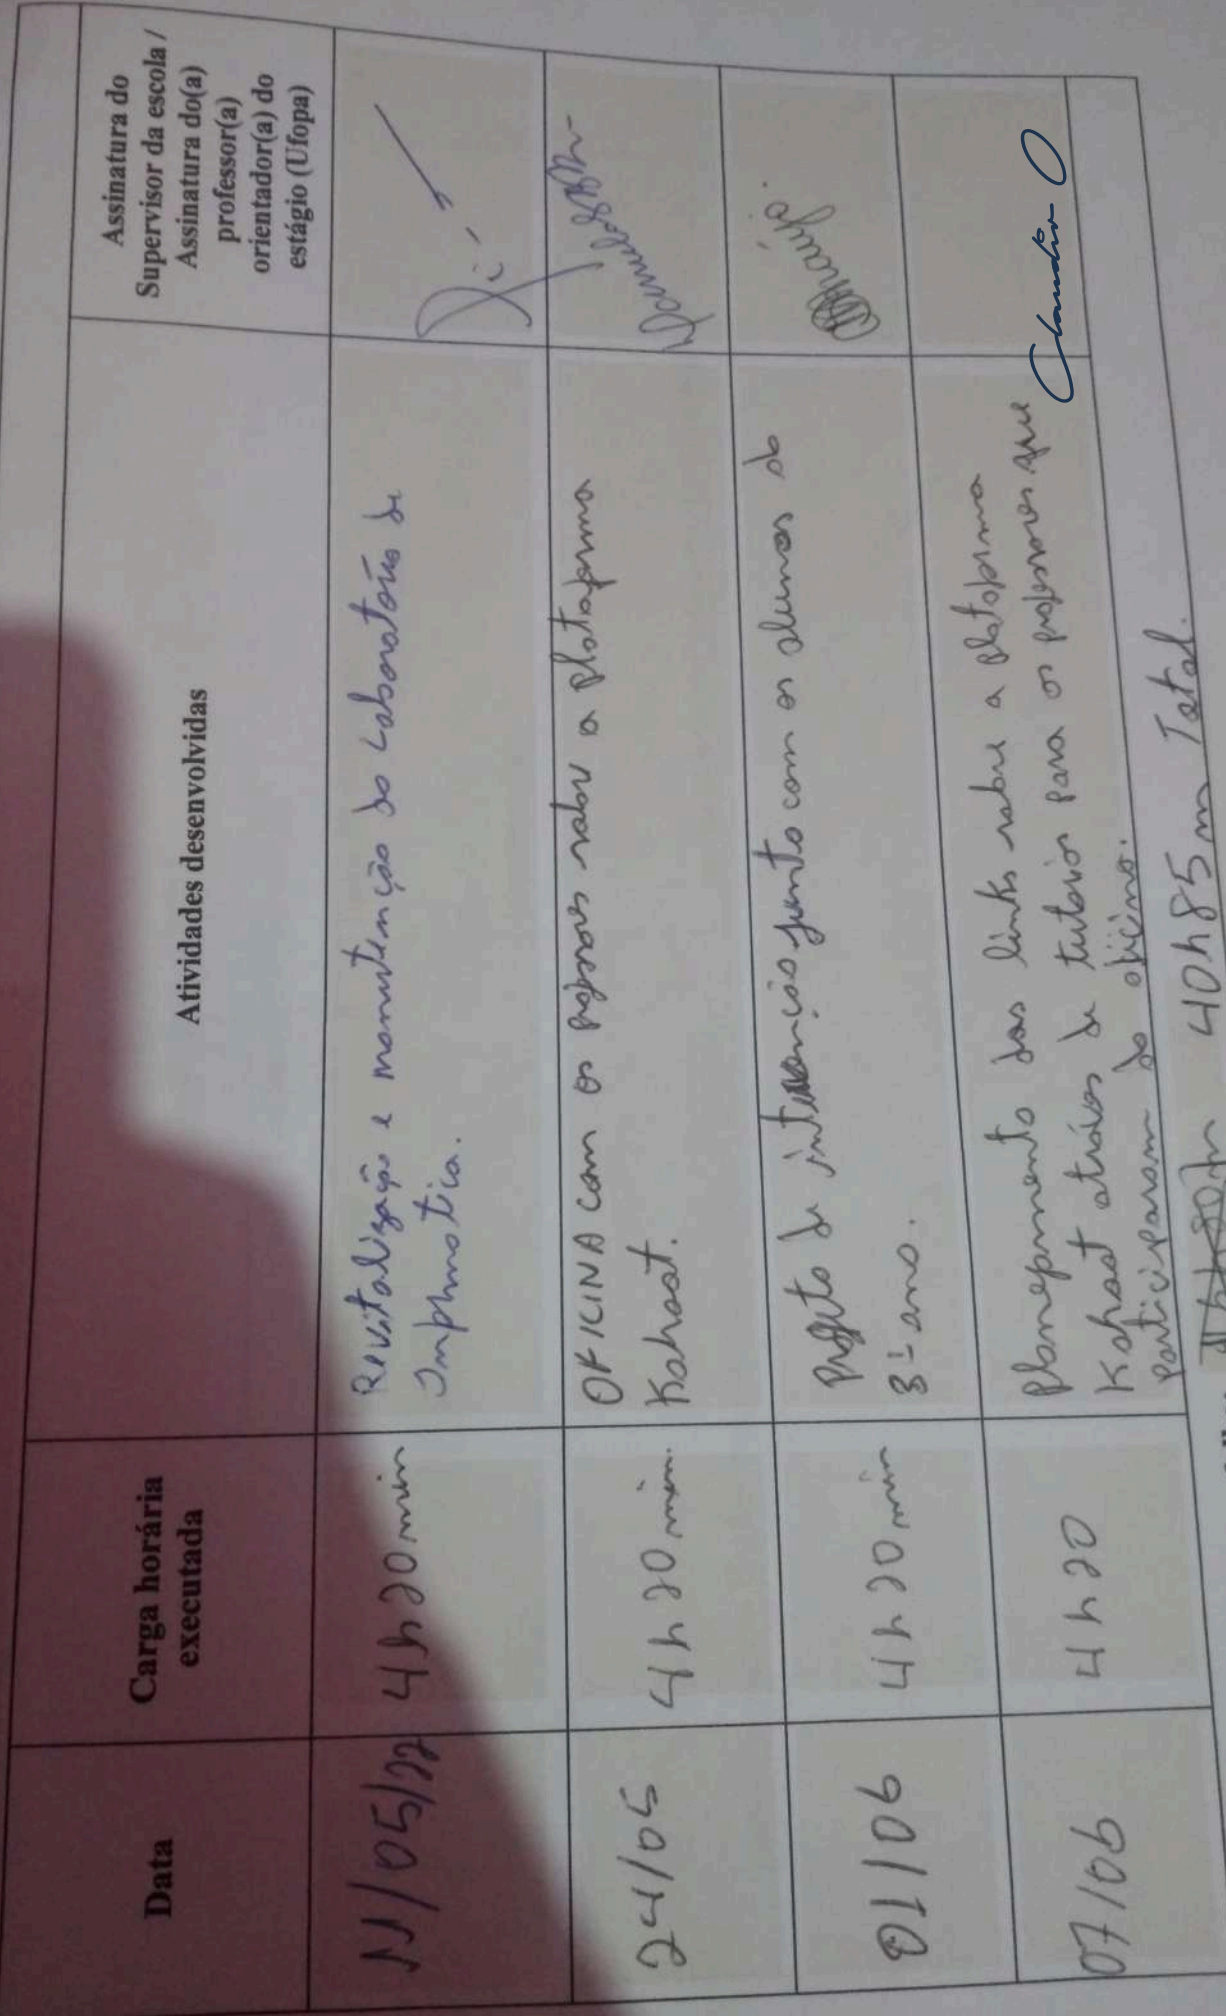 Data
Carga horária
executada
Atividades desenvolvidas
Assinatura do
Supervisor da escola /
Assinatura do(a)
professor(a)
orientador(a) do
estágio (Ufopa)
11/05/22
4h20min
Revitalização e manutenção do Laboratório de
Informática.
24/05
4h20min.
OFICINA com os professores sobre a plataforma
Kahoot.
01/06
4h20min
Projeto de intervenção junto com os alunos do
3º ano.
07/06
4h20
Planejamento dos links sobre a plataforma
Kahoot através de tutoriais para os professores que
participaram da oficina.
Claudio
40h85m Total.